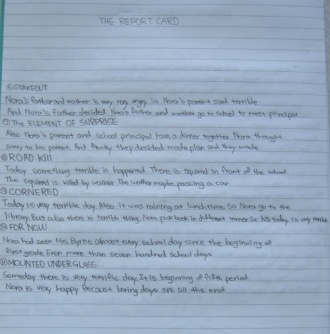 THE REPORT CARD
⑥STAKEOUT
Nora's father and mother is very very angry. So Nora's parent said terrible
And Nora's Father decided Nora's father and mother go to school to meet principal
⑦The ELEMENT OF SURPRISE
Also Nora's parent and school principal have a dinner together Nora thought
sorry to his parent. And finally they decided made plan and they made
⑧ROAD KIll
Today something terrible is happened. There is squirrel in front of the school
The squirrel is killed by woman. The mother maybe passing a car
⑨CORNERED
Today is very terrible day. Also it was raining at lunch time. So Nora go to the
library. But also there is terrible thing. Nora pick book in different corner. So it's today is very terrible
⑩FOR NOW
Nora had seen Mrs. Byrne almost every school day since the beginning of
first grade. Even more than seven hundred school days
⑪MOUNTED UNDER GLASS
Someday there is very terrific day. It is beginning of fifth period.
Nora is very happy. Because boring days are at the end